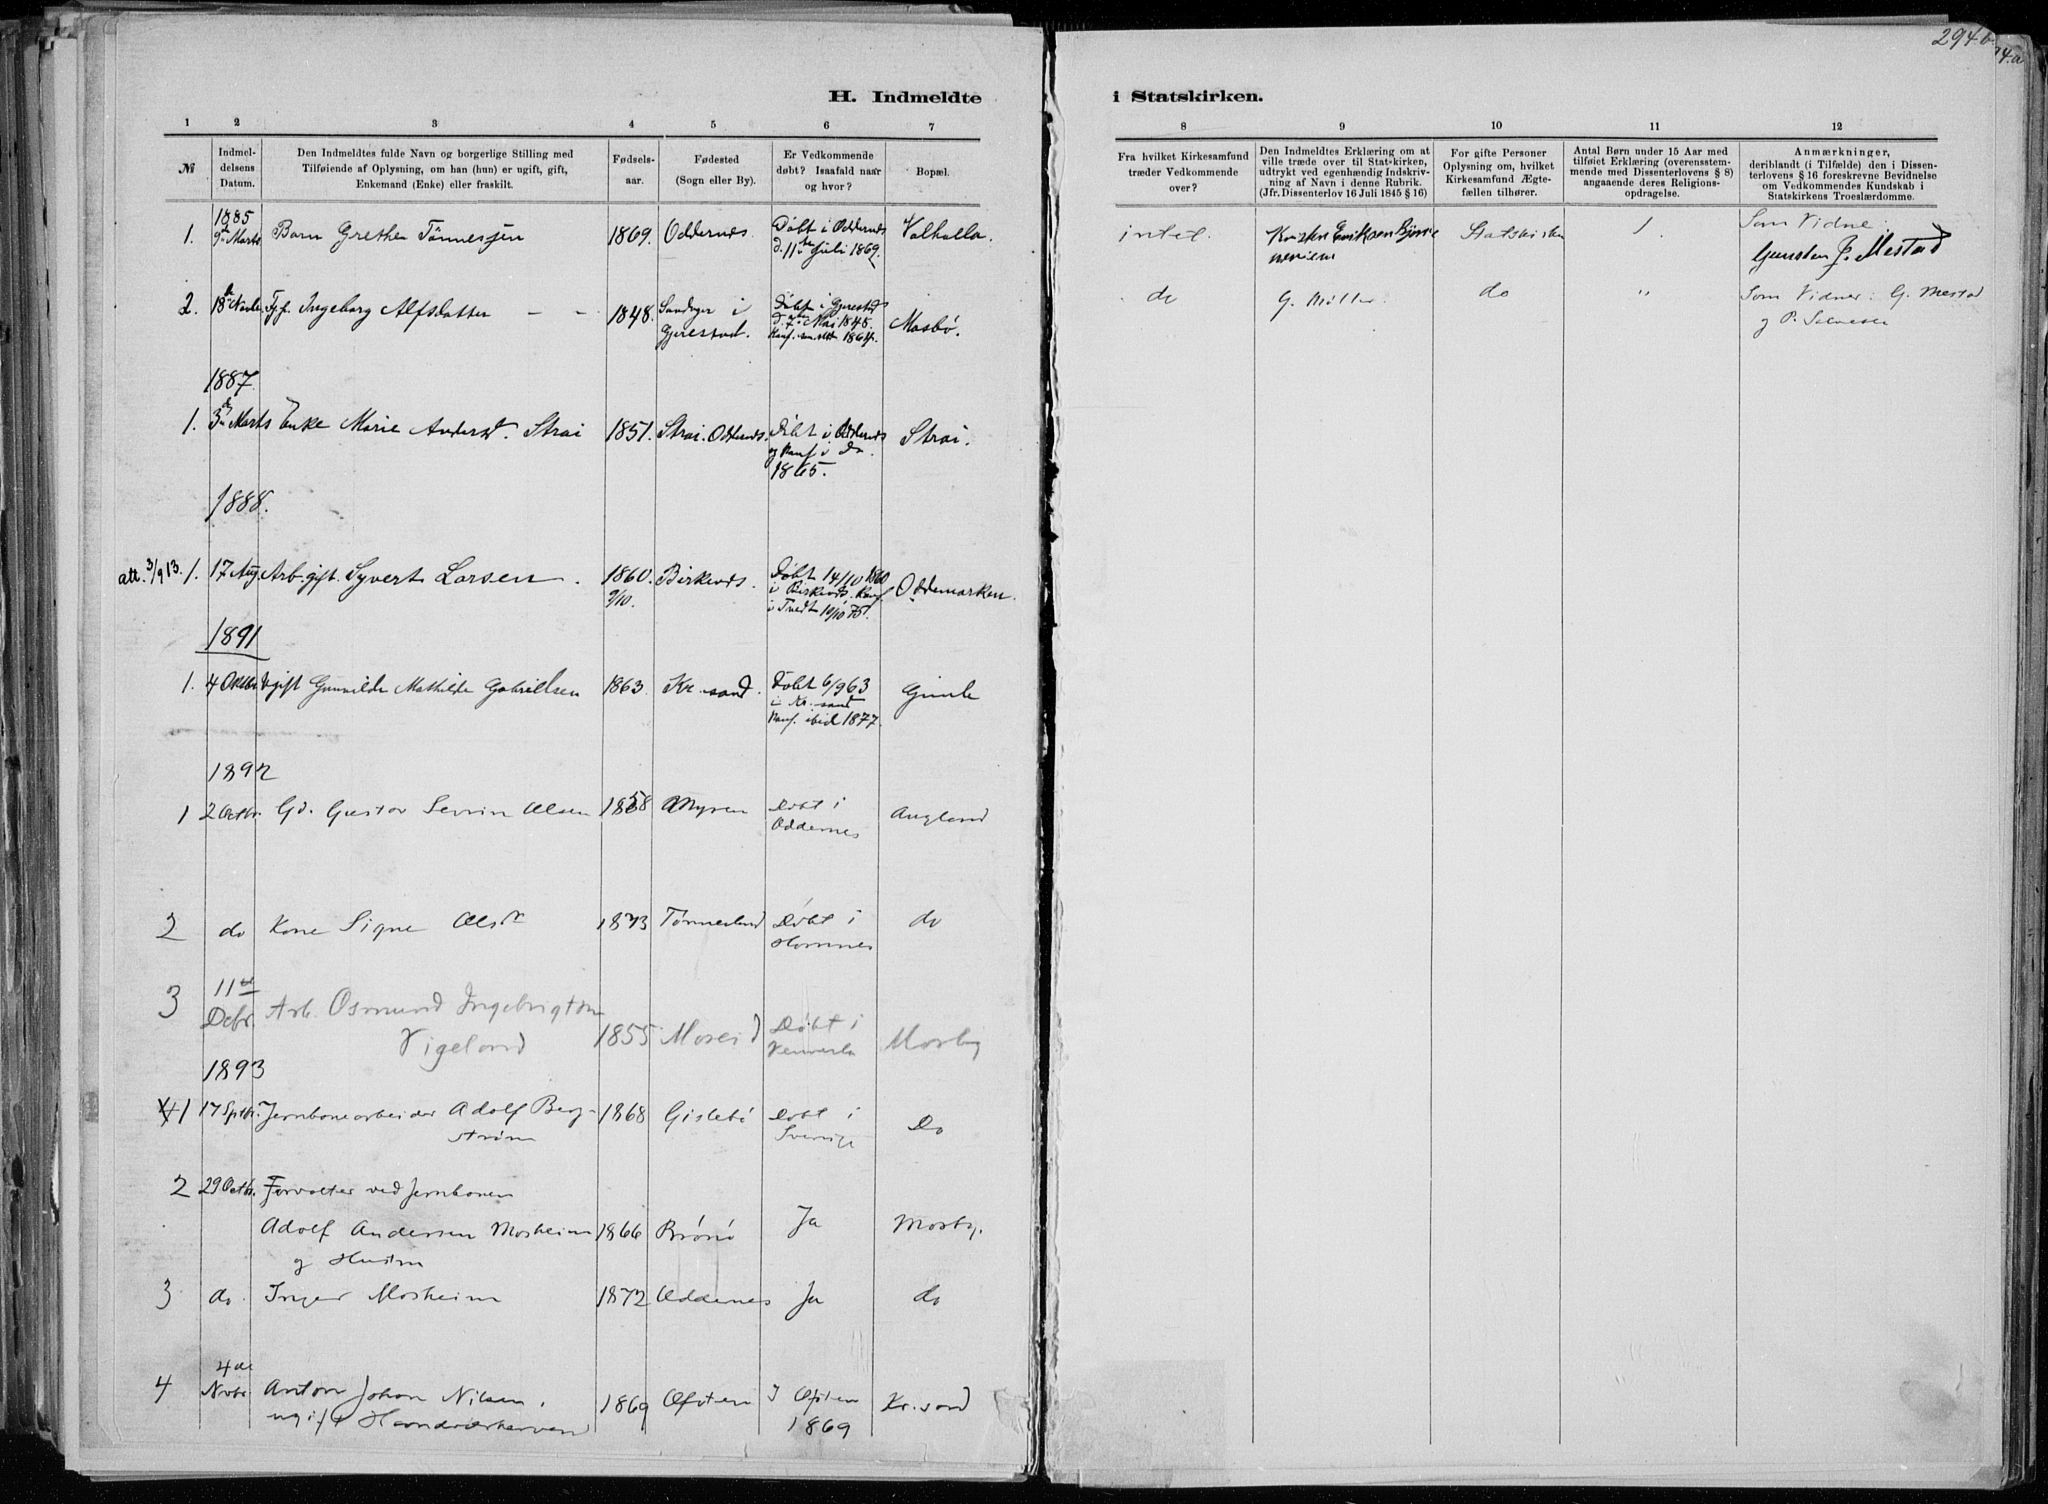 294 b.
4.a
H. Indmeldte i Statskirken.
1 2 3 4 5 6 7 8 9 10 11 12
№
Indmel-
delsens
Datum.
Den Indmeldtes fulde Navn og borgerlige Stilling med
Tilføiende af Oplysning, om han (hun) er ugift, gift,
Enkemand (Enke) eller fraskilt.
Fødsels-
aar.
Fødested
(Sogn eller By).
Er Vedkommende
døbt? Isaafald naar
og hvor?
Bopæl.
Fra hvilket Kirkesamfund
træder Vedkommende
over?
Den Indmeldtes Erklæring om at
ville træde over til Statskirken,
udtrykt ved egenhændig Indskriv-
ning af Navn i denne Rubrik.
(Jfr. Dissenterlov 16 Juli 1845 § 16)
For gifte Personer
Oplysning om, hvilket
Kirkesamfund Ægte-
fællen tilhører.
Antal Børn under 15 Aar med
tilføiet Erklæring (overensstem-
mende med Dissenterlovens § 8)
angaaende deres Religions-
opdragelse.
Anmærkninger,
deriblandt (i Tilfælde) den i Dissen-
terlovens § 16 foreskrevne Bevidnelse
om Vedkommendes Kundskab i
Statskirkens Troeslærdomme.
1885
1. 9de Marts Barn Grethe Tønnesen 1869. Oddernæs. Døbt i Oddernæs Valhalla. intet. Statskirken 1. Som Vidne:
d. 11te Juli 1869. Gunsten J. Mestad
2. 18de Novbr Ingeborg Alfsdatter - - 1848. i Døbt i Gjerestad Mosbø. do G. Møller. do " Som Vidner: G. Mestad
Gjerestad. Mai 1848. og P.
Konf. 1864.
1887.
1. 3de Marts Enke Marie Andersd. Strai 1851. Strai. Oddernæs. Døbt i Oddernæs Strai.
og konf i do.
1865.
1888.
att. 3/9 13. 1. 17 Aug. Arb. gift. Syvert Larsen. 1860. Birkenæs. Døbt 14/10 1860 Oddemarken.
9/10. i Birkenæs. Konf
i Tvedt 10/10 75.
1891
1. 4 Oktbr Ugift Gunnilde Mathilde Gabrielsen 1863. Kr.sand. Døbt 6/9 63 Gimle
i Kr.sand
Konf. ibid 1877.
1892
1 2 Octbr. Gd. Gustav Severin Olsen 1858 Myren Døbt i Augland
Oddernes
2 do Kone Signe Olsdr 1873 Døbt i do
3 11te
Debr. Arb. Osmund Ingebrigtsen
Vigeland 1855 Moseid Døbt i Mosby
Vennesla
1893
1 17 Sptbr. Jernbanearbeider Adolf Berg- 1868 Gislebö Døbt i Do
strøm Sverige
2 29 Octbr. Forvalter ved Jernbanen
Adolf Andersen Mosheim 1866 Brönö Ja Mosby.
og Hustru
3 do Inger Mosheim 1872 Oddernes Ja do
4 4de
Novbr Anton Johan Nilsen, 1869 Ofoten I Ofoten Kr.sand
ugift 1869